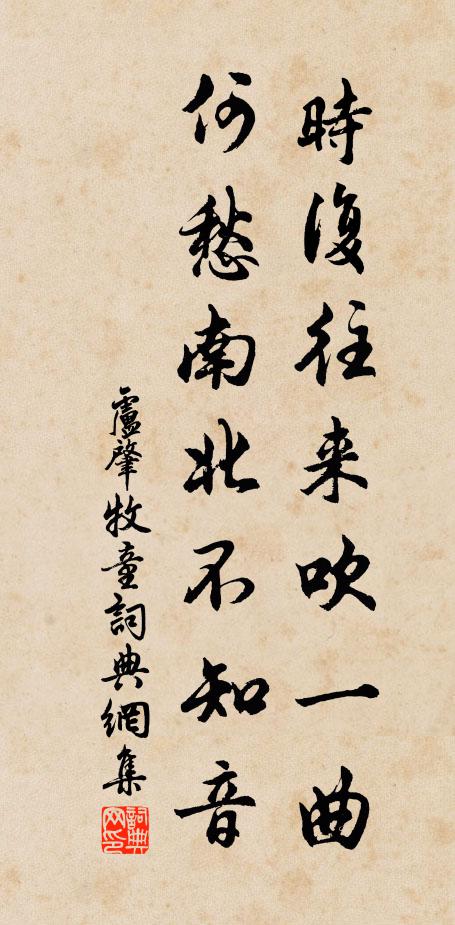 時復往来吹一曲
何愁南北不知音
盧肇牧童詞典網集
詞典网印